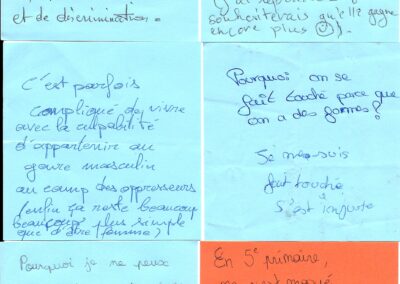 et de discrimination.
souhaiterais qu'elle gagne
encore plus ☺).
C'est parfois
compliqué de vivre
avec la culpabilité
d'appartenir au
genre masculin
au camp des oppresseurs
(enfin ça reste beaucoup
beaucoup plus simple
que d'être femme)
Pourquoi on se
fait touché parce que
on a des formes?
Je me suis
fait touché
s'est injuste
Pourquoi je ne peux
En 5e primaire,